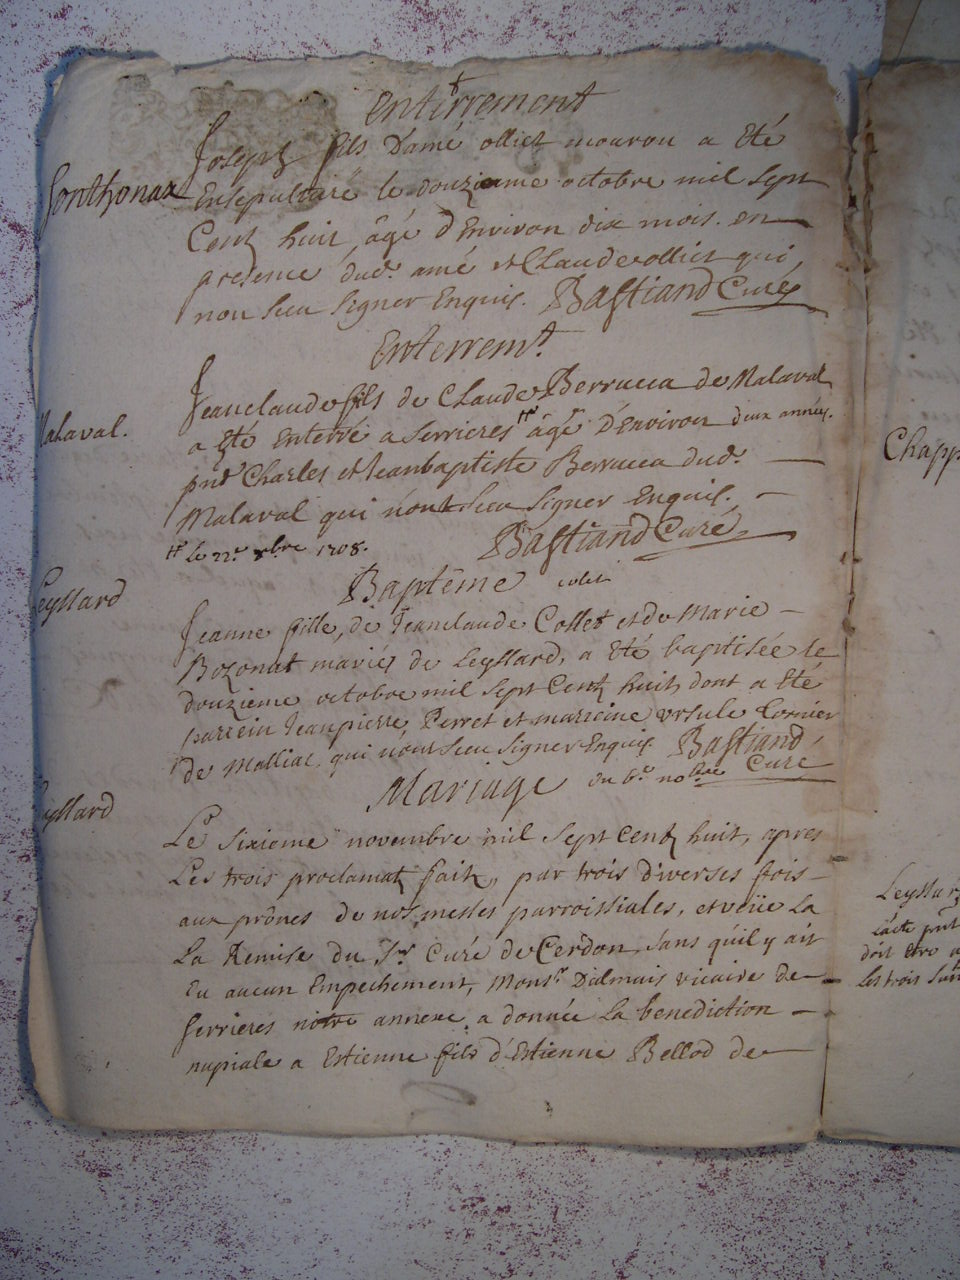 Enterrement
Joseph fils D'amé olliet mouron a Eté
Sonthonax
Ensepulturé le douzieme octobre mil sept
Centz huit, âgé d'Environ dix mois. en
presence dud. amé et Claude olliet qui
non sceu signer Enquis. Bastiand Curé
Enterremt.
Jeanclaude fils de Claude Berrucca de Malaval
Malaval.
a Eté Enterré a Serrieres # âgé D'Environ deux années.
pnt Charles et Jeanbaptiste Berrucca dud.
Malaval qui n'ont sceu signer Enquis.
# Le 22e 8bre 1708. Bastiand Curé
Baptême
Leyssard
Jeanne fille, de Jeanclaude Collet et de Marie
Bozonat mariés de Leyssard, a Eté baptisée le
douzieme octobre mil sept Centz huit, dont a Eté
parrein Jeanpierre Perret et marreine Ursule Cornier
de Malliac, qui n'ont sceu signer Enquis. Bastiand
Curé
Mariage du 6e. nobre
Leyssard
Le Sixieme novembre mil sept Centz huit, apres
Les trois proclamatz faitz, par trois diverses fois
aux prônes de nos messes parroissiales, et veüe La
La Remise du Sr. Curé de Cerdon, sans qu'il y ait
Eu aucun Empechement, Monsr. Dalmais vicaire de
Serrieres notre annexe, a donnée La benediction
nupiale a Estienne fils d'Estienne Bellod de
Chapp
Leyssar
L'acte pnt
doit etre
Les trois